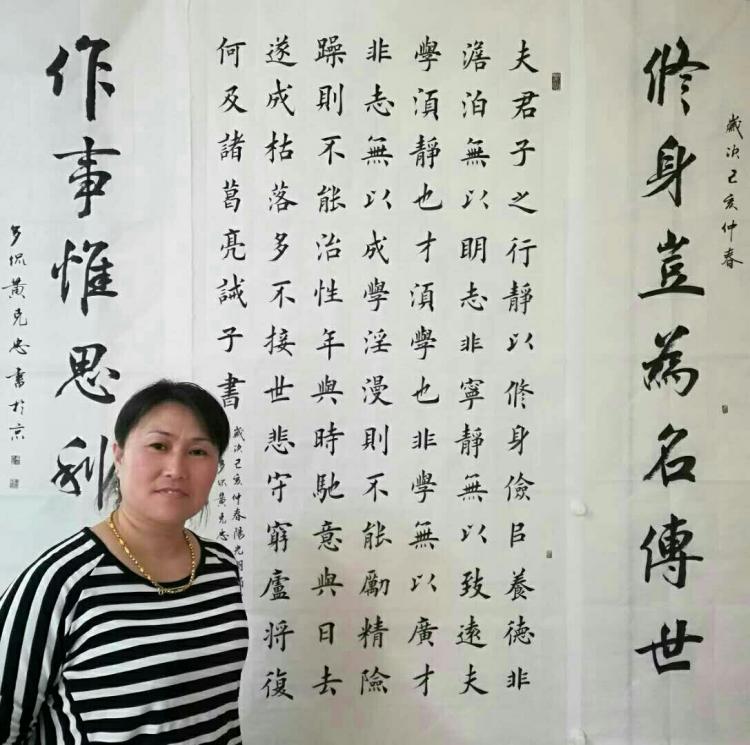 修身豈為名傳世
歲次己亥仲春
夫君子之行靜以修身儉㠯養德非
澹泊無以明志非寧靜無以致遠夫
學須靜也才須學也非學無以廣才
非志無以成學淫漫則不能勵精險
躁則不能治性年與時馳意與日去
遂成枯落多不接世悲守窮廬將復
何及諸葛亮誡子書
歲次己亥仲春陽光明
黃克忠
作事惟思利
黃克忠書於京